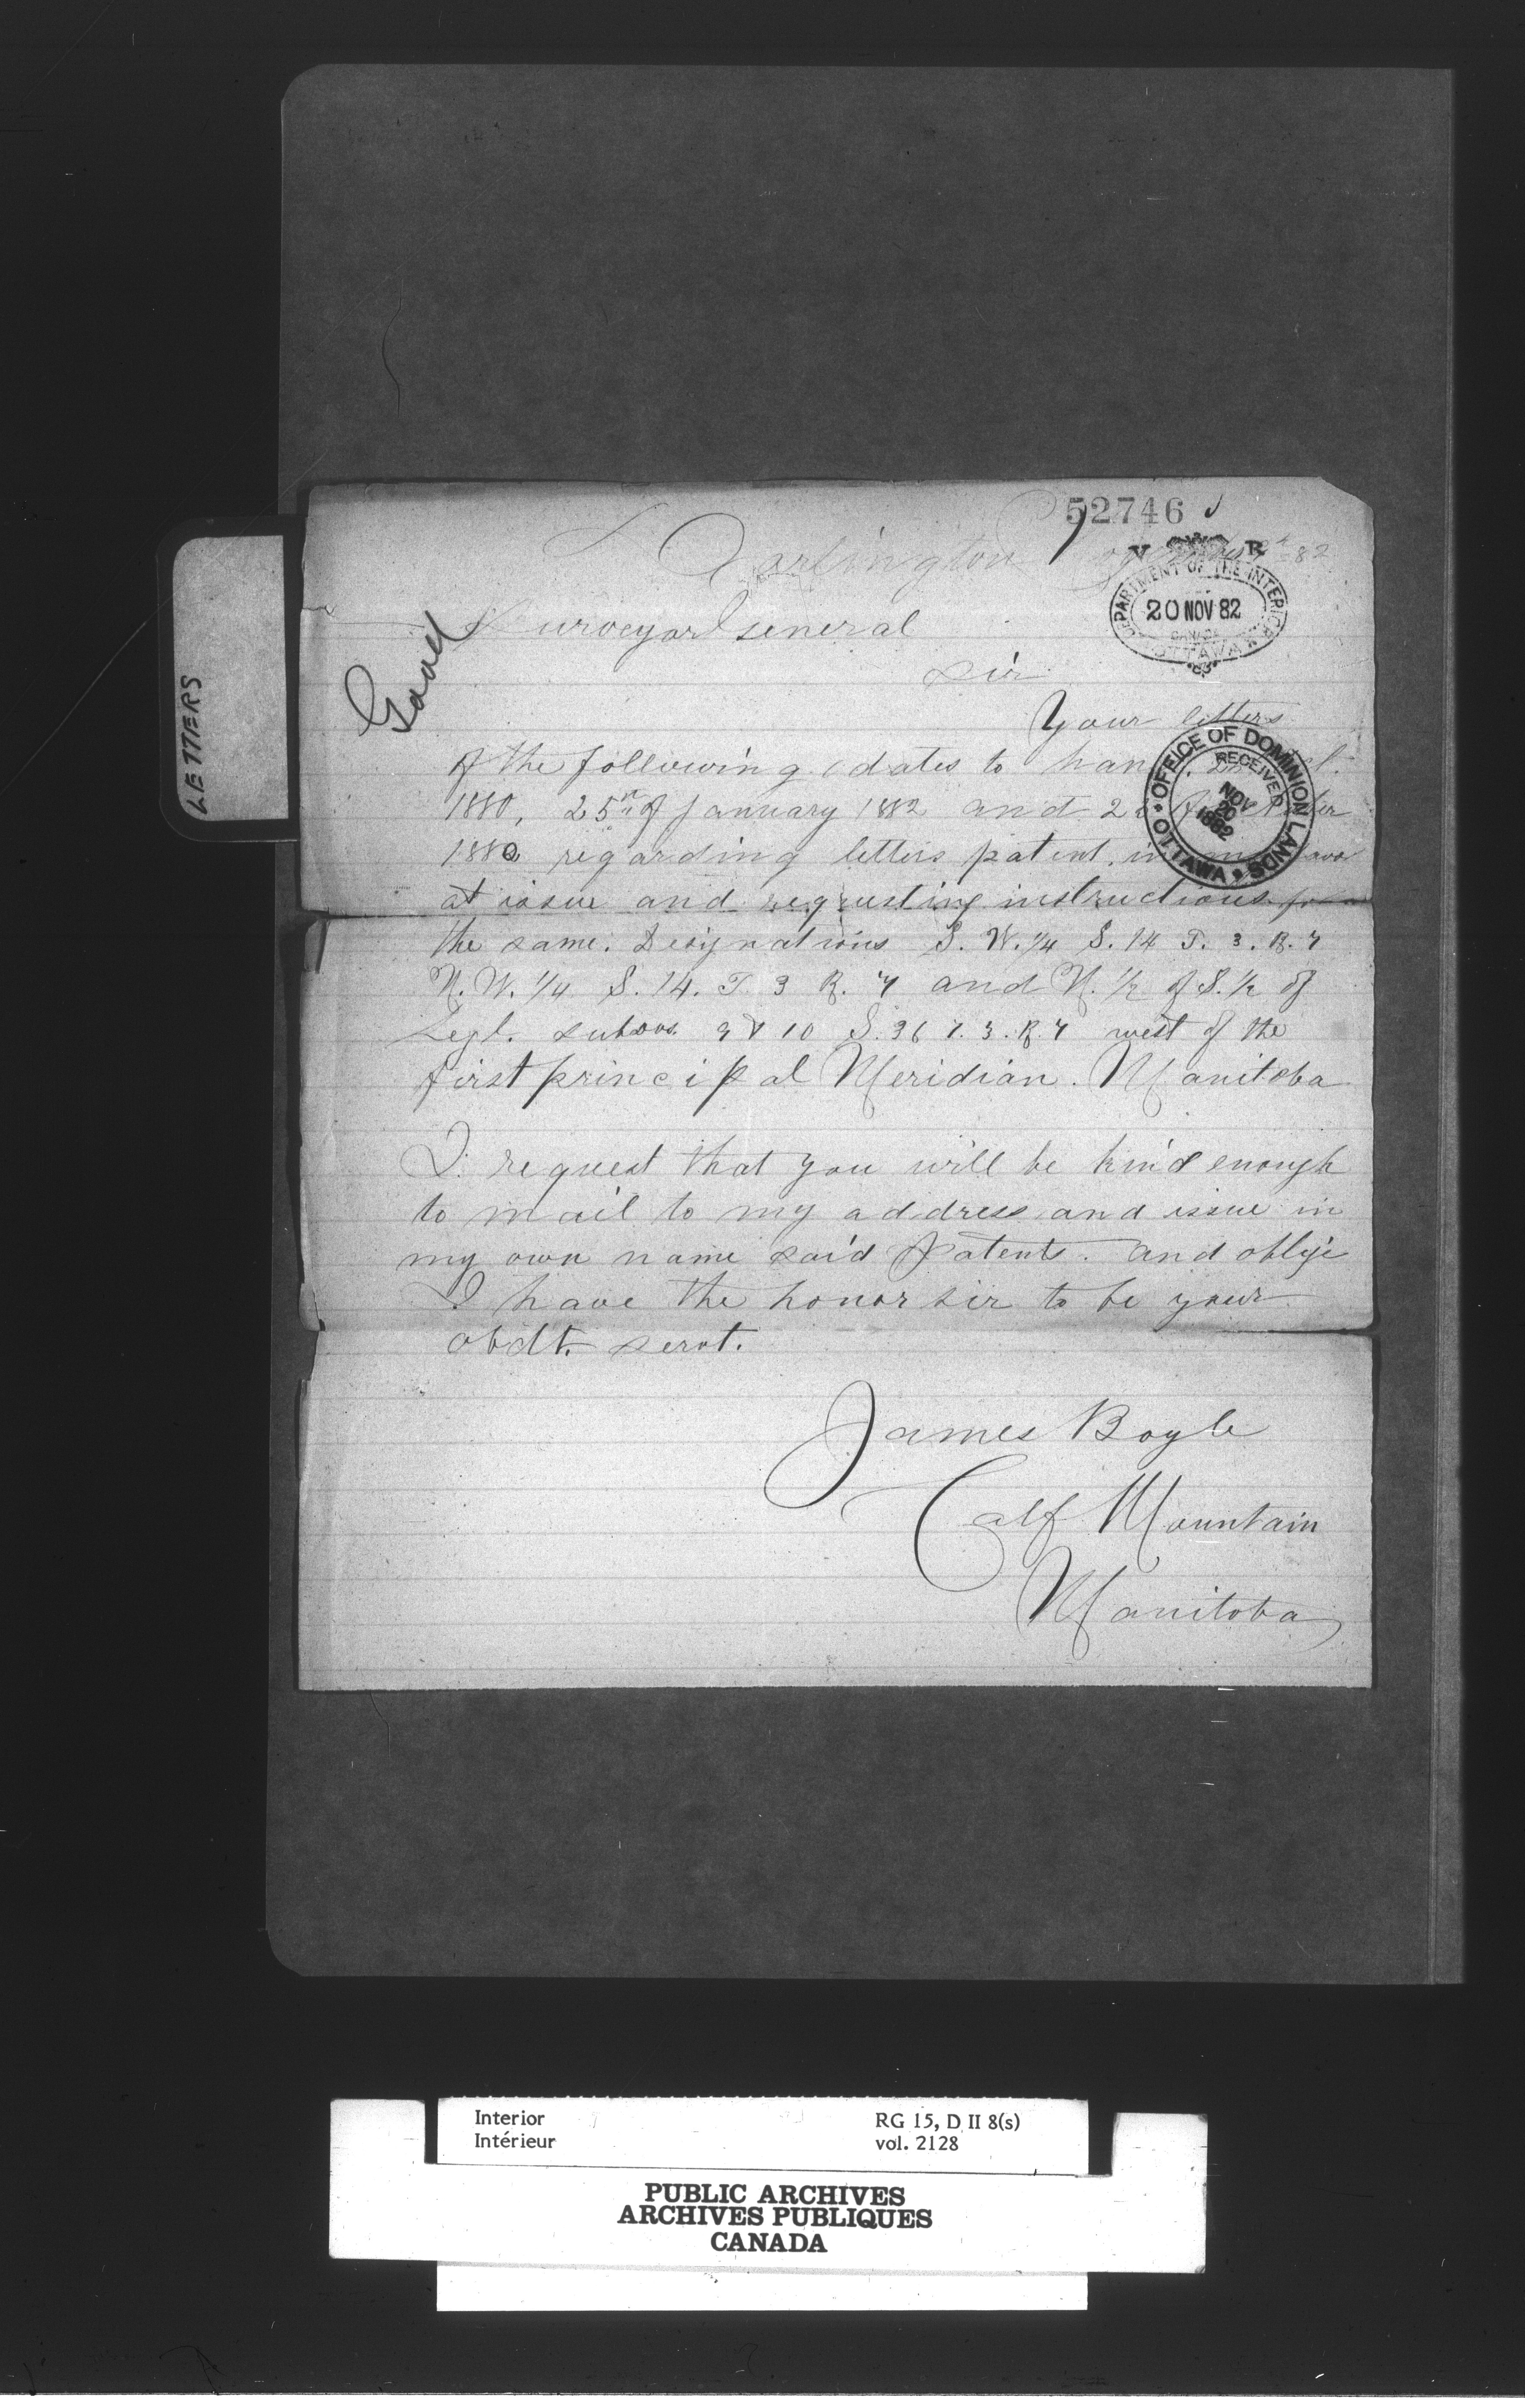 52746
Darlington 82
V R
DEPARTMENT OF THE INTERIOR
20 NOV 82
CANADA
OTTAWA
Surveyor General
Sir
Your letters
of the following dates to
1880, 25th of January 1882 and
1880 regarding letters patent, in
at issue and requesting instructions for
the same. Designations S. W. 1/4 S. 14 T. 3. R. 7
N. W. 1/4 S. 14. T. 3 R. 7 and N. 1/2 of S. 1/2 of
Legl. subdvs. 9 & 10 S. 36 T. 3. R. 7 west of the
first principal Meridian. Manitoba
I request that you will be kind enough
to mail to my address and issue in
my own name said Patents. and oblige
I have the honor sir to be your
obdt. servt.
James Boyle
Calf Mountain
Manitoba
OFFICE OF DOMINION LANDS
RECEIVED
NOV
20
1882
OTTAWA
LETTERS
Interior
Intérieur
RG 15, D II 8(s)
vol. 2128
PUBLIC ARCHIVES
ARCHIVES PUBLIQUES
CANADA